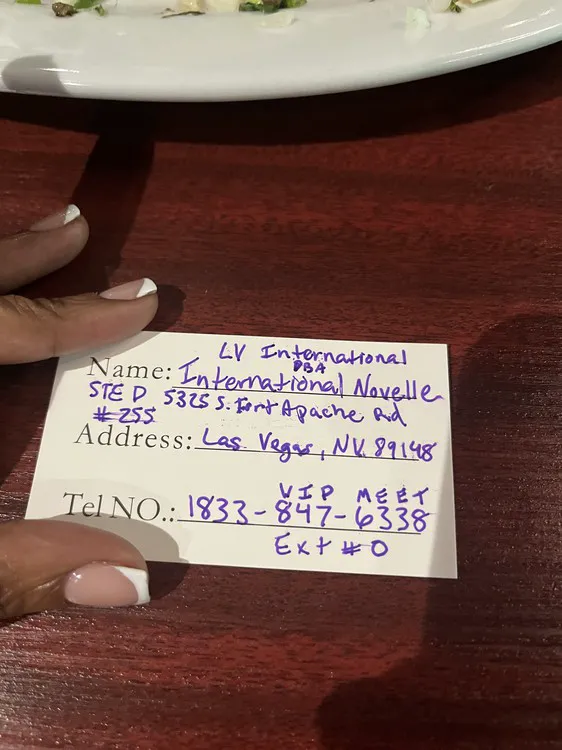 LV International
DBA
Name: International Novelle
STE D 5325 S. Fort Apache Rd
#255
Address: Las Vegas, NV. 89148
VIP MEET
Tel NO.: 1833-847-6338
Ext #0